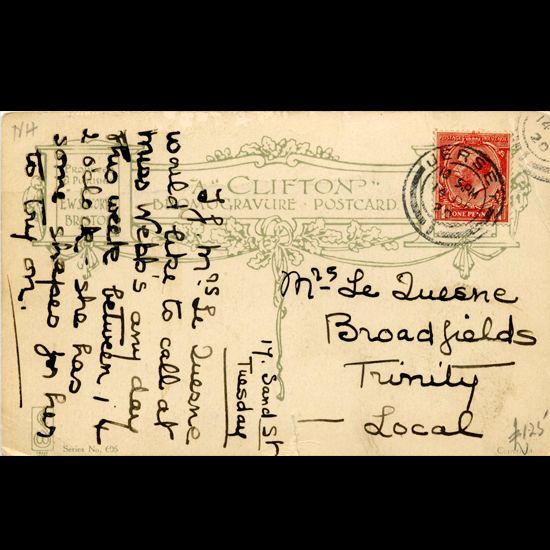 NH
A "CLIFTON"
BROMOGRAVURE POSTCARD
JERSEY
5 PM
ONE PENNY
20
17, Sand St
Tuesday
If Mrs Le Quesne
would like to call at
Miss Webb's any day
this week between 1 &
2 o'clock - she has
some shapes for her
to try on.
Mrs Le Quesne
Broadfields
Trinity
Local
Series No. 606